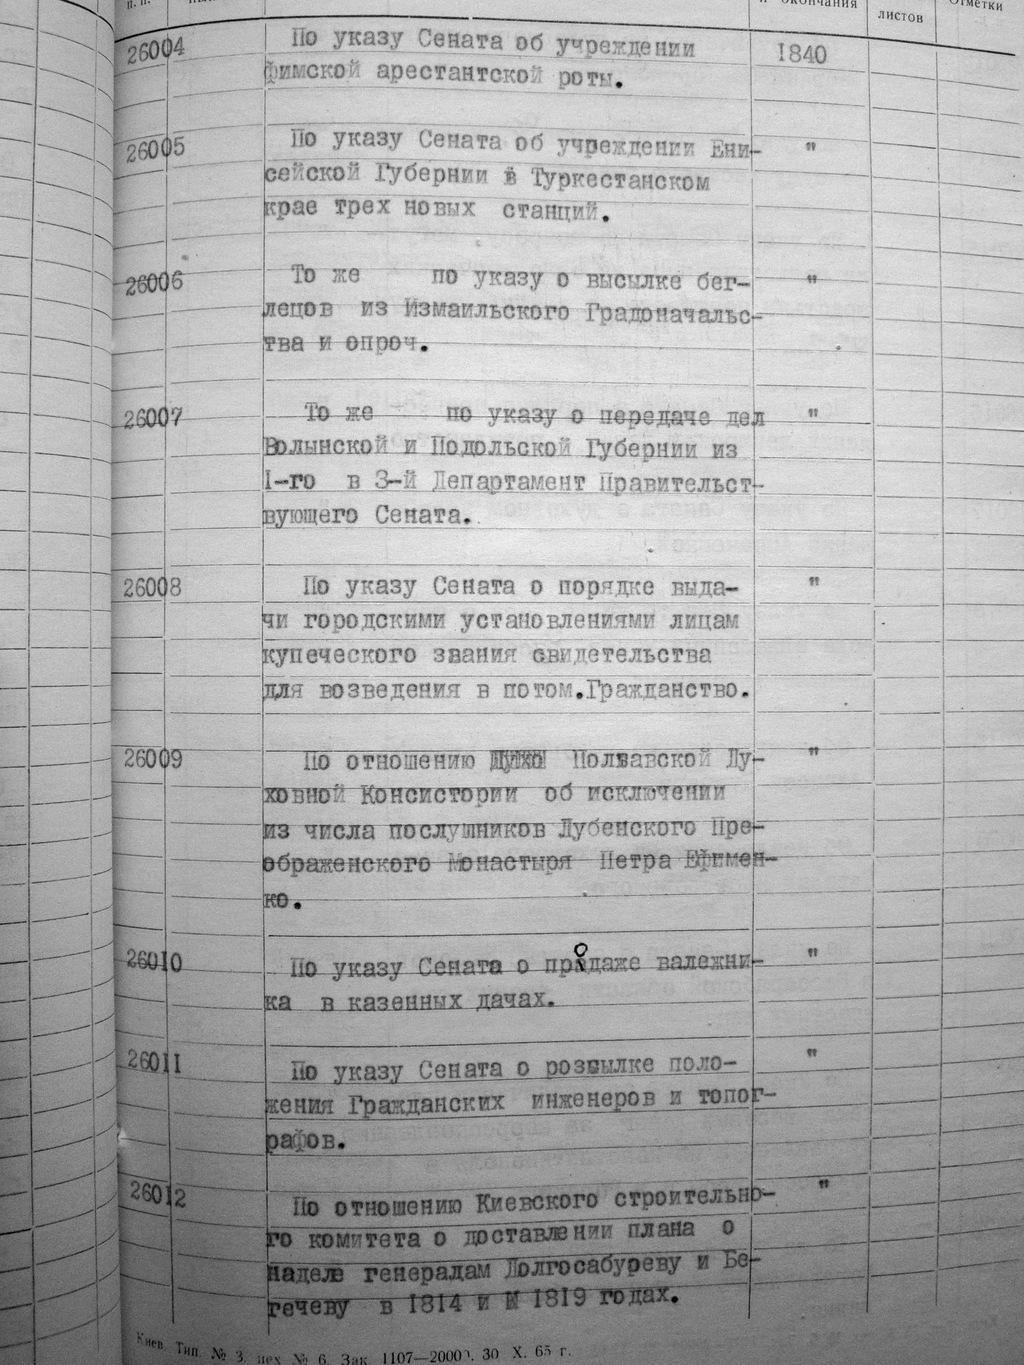 п. п.
и окончания
листов
Отметки
26004 По указу Сената об учреждении 1840
фимской арестантской роты.
26005 По указу Сената об учреждении Ени- "
сейской Губернии в Туркестанском
крае трех новых станций.
26006 То же по указу о высылке бег- "
лецов из Измаильского Градоначальс-
тва и опроч.
26007 То же по указу о передаче дел "
Волынской и Подольской Губернии из
I-го в 3-й Департамент Правительст-
вующего Сената.
26008 По указу Сената о порядке выда- "
чи городскими установлениями лицам
купеческого звания свидетельства
для возведения в потом.Гражданство.
26009 По отношению Полтавской Ду- "
ховной Консистории об исключении
из числа послушников Лубенского Пре-
ображенского Монастыря Петра Ефимен-
ко.
26010 По указу Сената о продаже валежни- "
ка в казенных дачах.
26011 По указу Сената о розсылке поло- "
жения Гражданских инженеров и топог-
рафов.
26012 По отношению Киевского строительно- "
го комитета о доставлении плана о
наделе генералам Долгосабуреву и Бе-
гечеву в 1814 и 1819 годах.
Киев. Тип. № 3, цех № 6. Зак. 1107—2000. 30 X. 65 г.